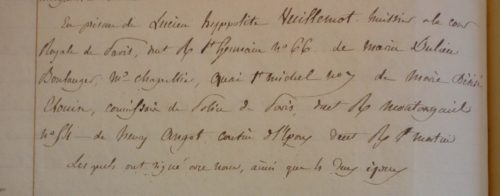 En présence de Lucien hyppolite Huillemot huissier a la cour
Royale de Paris, dmt R St Germain n° 66. de Marin Julien
Boulanger, Md chapellier, quai St michel n° 7 de Marie Désiré
commissaire de Police de Paris dmt R montorgueil
n° 54 — de henry Angot cousin d'Epoux dmt R St martin
Lesquels ont signé avec nous, ainsi que les deux époux